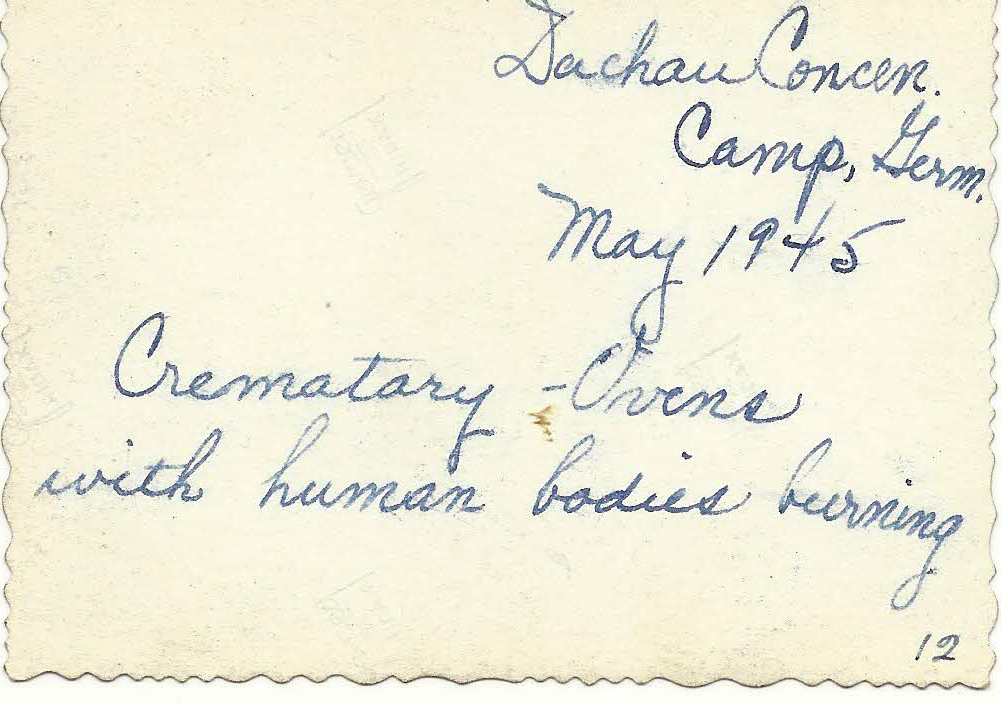 Dachau Concen.
Camp, Germ.
May 1945
Crematary - Ovens
with human bodies burning
12